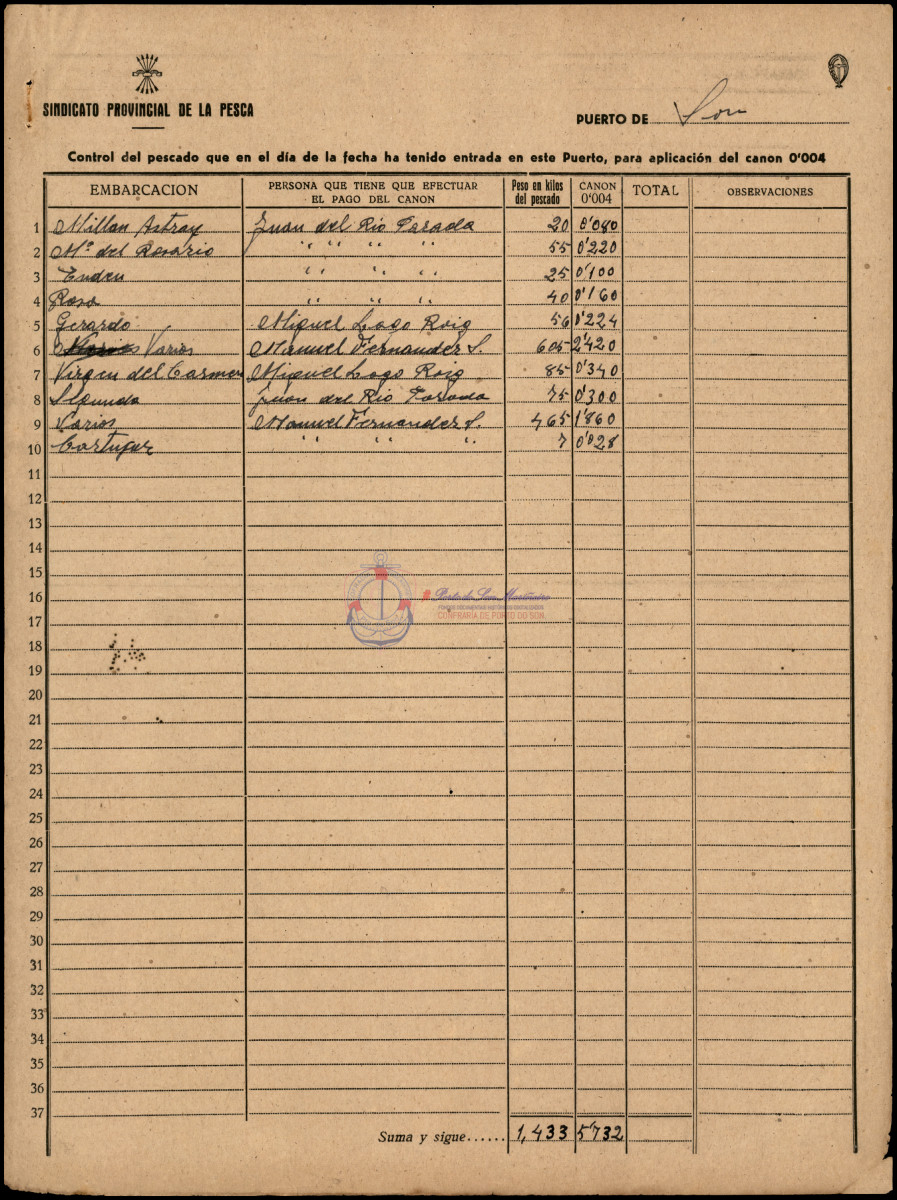 SINDICATO PROVINCIAL DE LA PESCA
PUERTO DE Son
Control del pescado que en el día de la fecha ha tenido entrada en este Puerto, para aplicación del canon 0'004
EMBARCACION PERSONA QUE TIENE QUE EFECTUAR EL PAGO DEL CANON Peso en kilos del pescado CANON 0'004 TOTAL OBSERVACIONES
1 Millan Astray Juan del Río Parada 20 0'080
2 Mª del Rosario " " " " 55 0'220
3 " " " 25 0'100
4 Rosa " " " 40 0'160
5 Gerardo Miguel Lago Roig 56 0'224
6 Varios Manuel Fernandez S. 605 2'420
7 Virgen del Carmen Miguel Lago Roig 85 0'340
8 Segunda Juan del Río Parada 75 0'300
9 Varios Manuel Fernandez S. 465 1'860
10 " " " 7 0'028
11
12
13
14
15
16
17
18
19
20
21
22
23
24
25
26
27
28
29
30
31
32
33
34
35
36
37
Suma y sigue...... 1,433 5'732
# Porto do Son Mariñeiro
CONFRARÍA DE PORTO DO SON